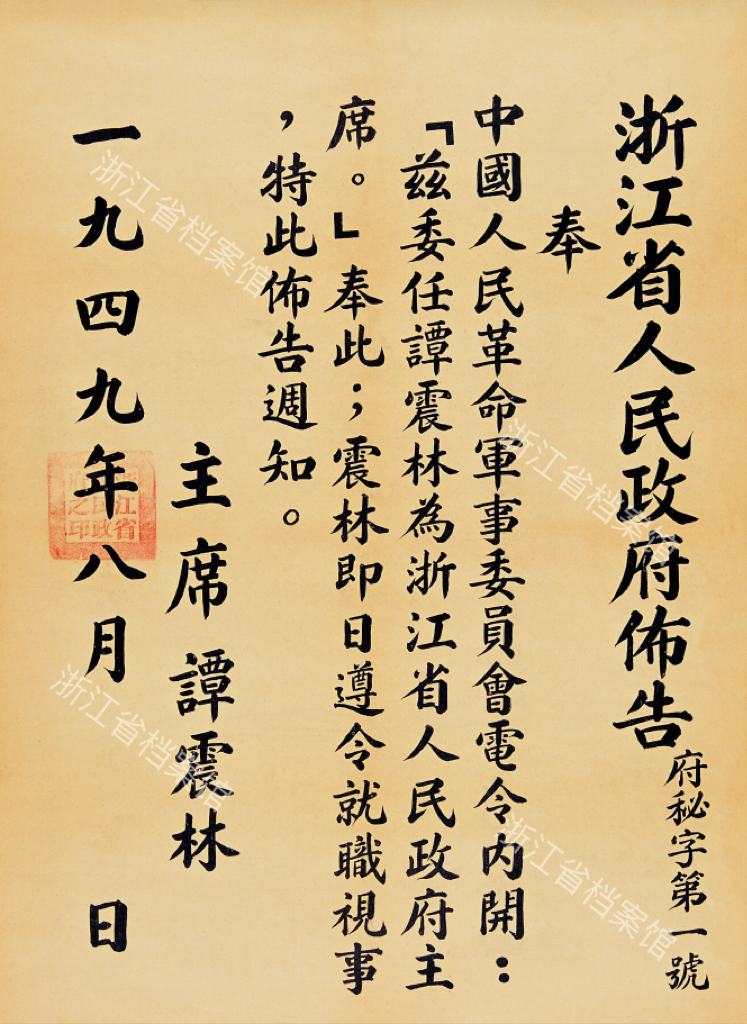 浙江省人民政府佈告
府秘字第一號
奉
中國人民革命軍事委員會電令內開：
「茲委任譚震林為浙江省人民政府主
席。」奉此；震林即日遵令就職視事
，特此佈告週知。
主席 譚震林
一九四九年八月 日
浙江省人民政府之印
浙江省档案馆
浙江省档案馆
浙江省档案馆
浙江省档案馆